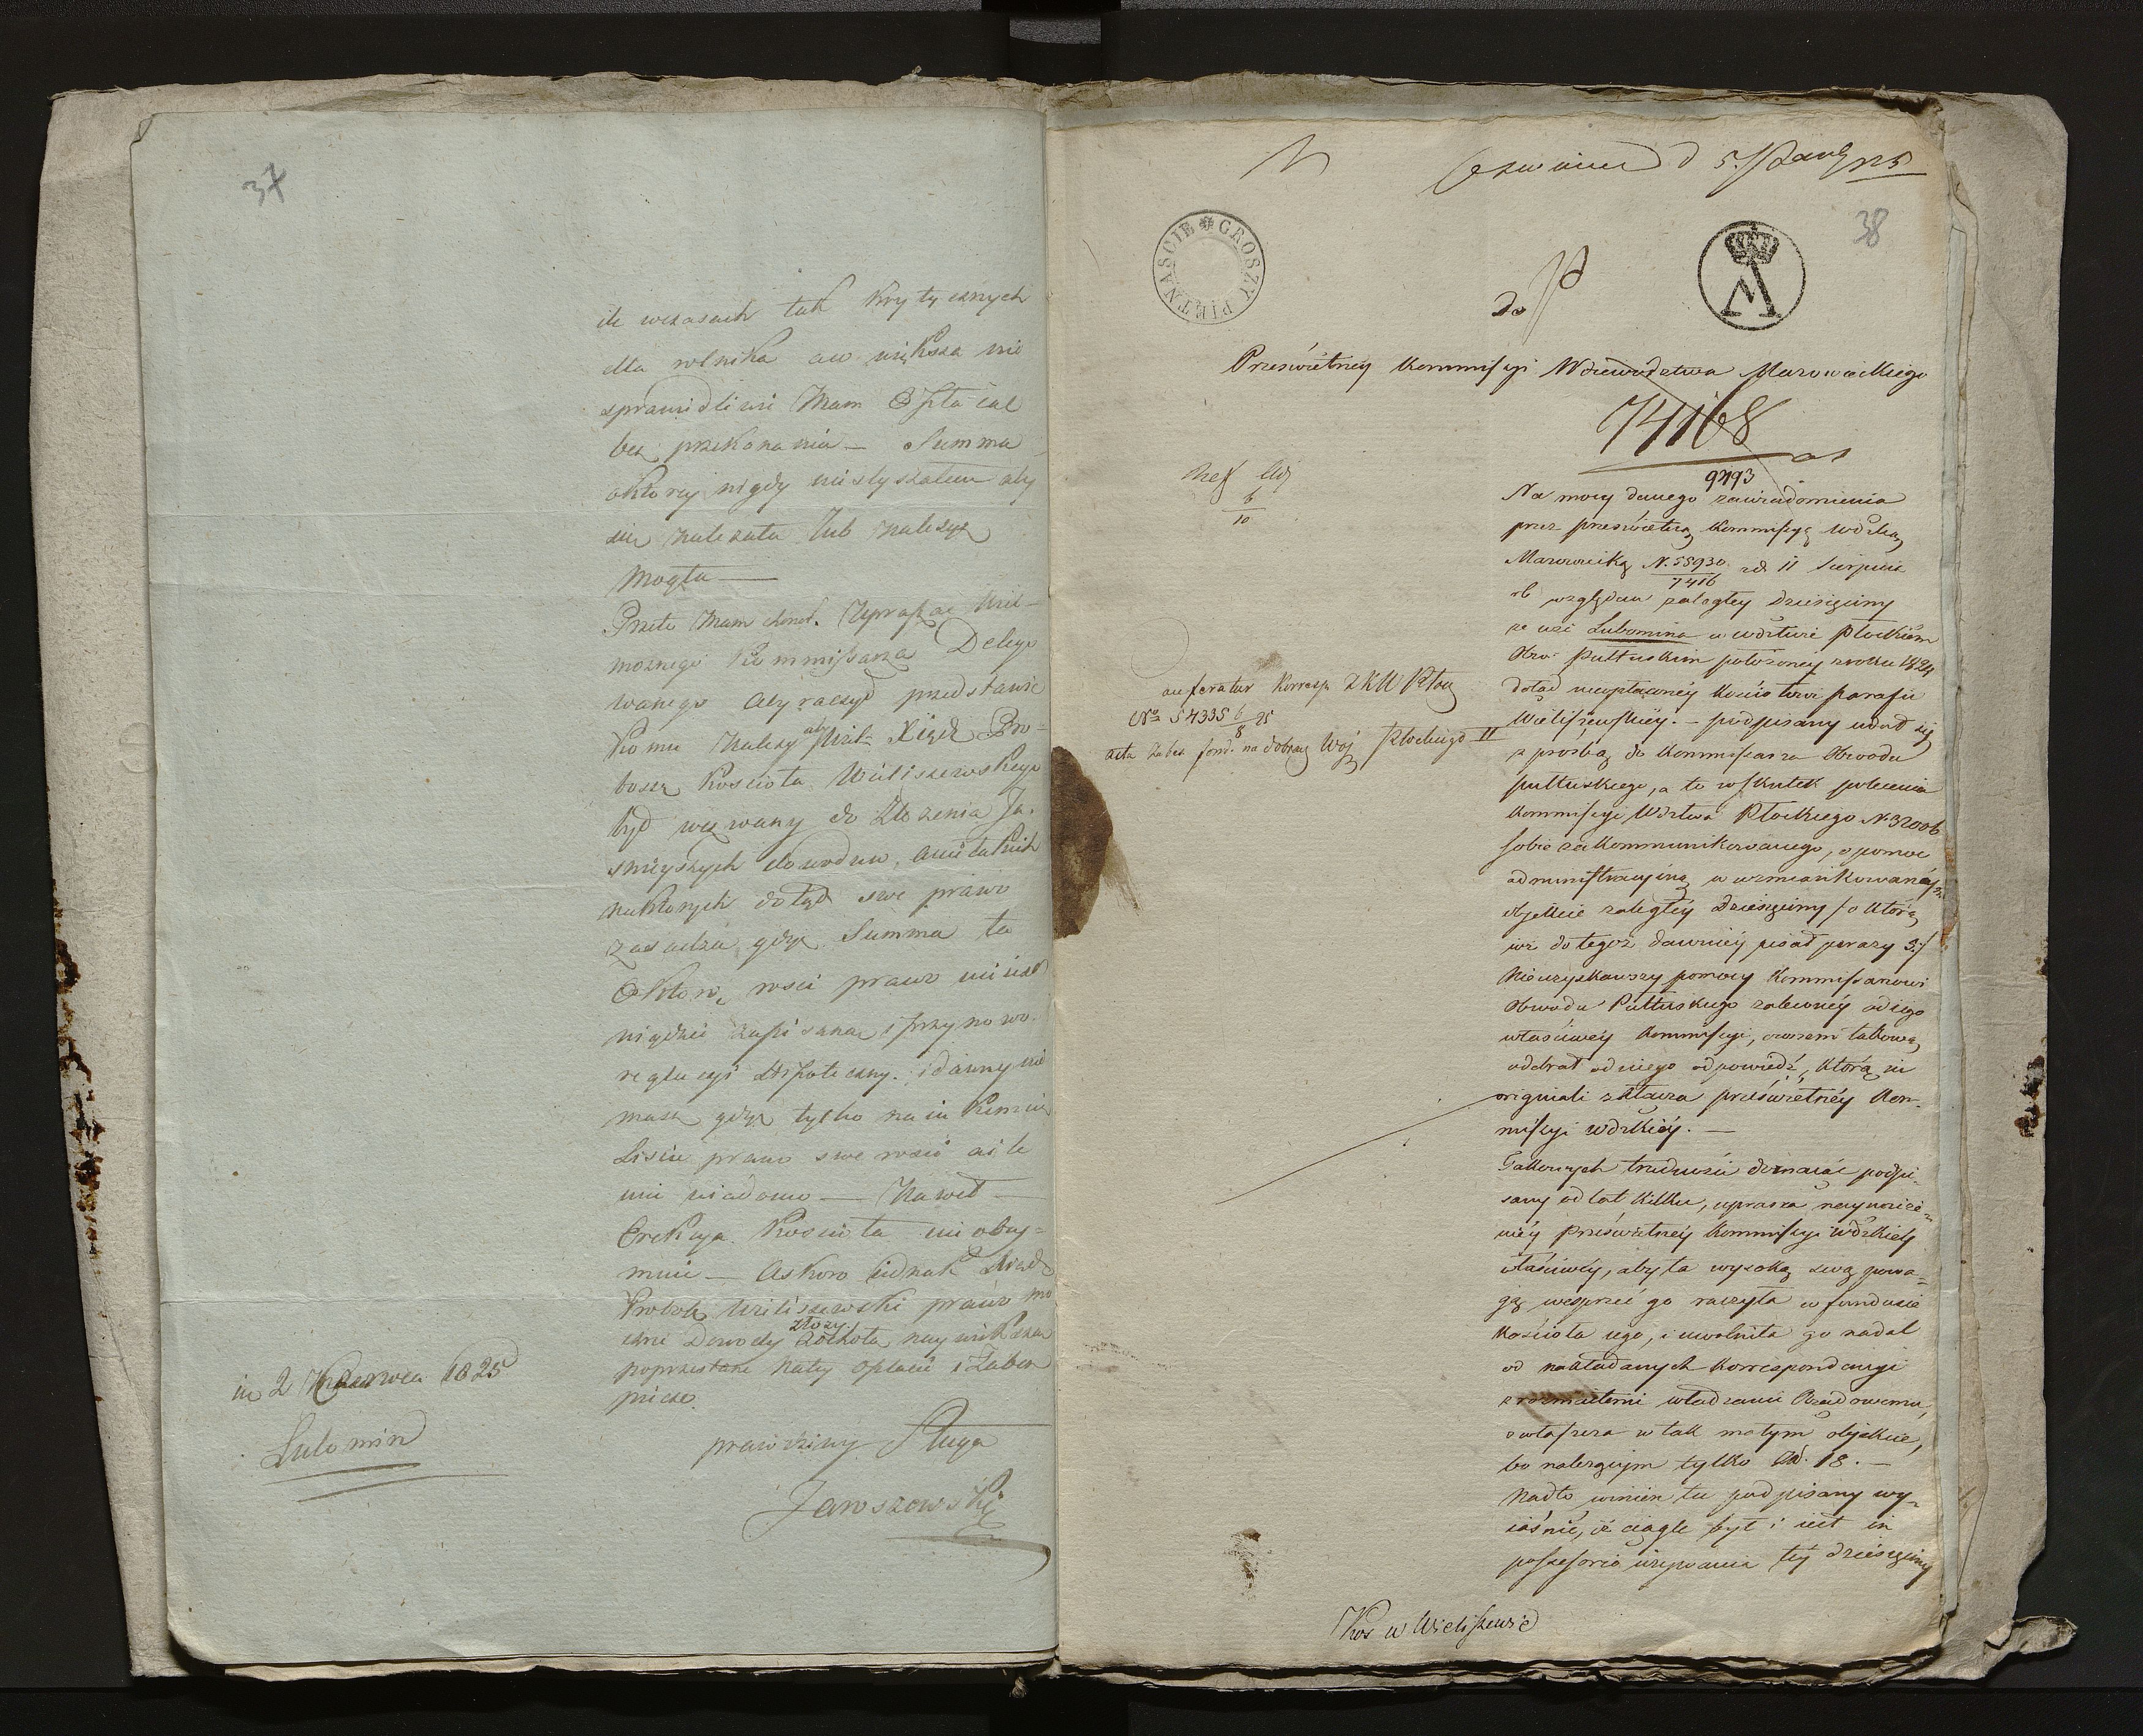 37
ile wczasach tak krytycznych
dla rolnika a co większa nie
sprawiedliwi mam Opłacać
bez przekonania — Summa
októrey nigdy niesłyszałem aby
się należała lub należyć
mogła —
Przeto mam honor Upraszać Wiel-
możnego Kommissarza Delego
wanego aby raczył przedstawić
komu należy aby Wiel. Xiądz Pro-
boszcz Kościoła Wieliszewskiego
był wezwany do złożenia Ja-
śnieyszych dowodów, anie takich
naktórych dotąd swe prawo
zasadza gdyż Summa ta
Októrą rości prawo nie iest
nigdzie zapisana i przy nowo
regulacyi Hipoteczny. i dawny nie
masz gdyż tylko na
prawo swe rości ai le
mi wiadomo — Nawet —
Erekcya Kościoła nie obey-
muie — Askoro iednak Xiądz
Probosz Wieliszewski prawo mo
cne Dowody złoży. Zochotą naywiększą
poprzestanę Raty opłacić i Zabez
pieczę.
in 2 Czerwca 1825
Lubomin
prawdziwy Sługa
Jaroszewski
38
GROSZY PIĘTNAŚCIE
do
Prześwietney Kommissyi Woiewództwa Mazowieckiego
74168
9793
Na mocy danego zawiadomienia
przez prześwietną Kommissyę Wdzką
Mazowiecką N. 55930/7416 zd. 11 Sierpnia
rb względem zaległey Dziesięciny
ze wsi Lubomina w Wdztwie Płockiém
Obwo: Pułtuskim położoney z roku 1824
dotąd nieopłaconéy Kościołowi parafii
Wieliszewskiéy. — podpisany udał się
z prośbą do Kommissarza Obwodu
pułtuskiego, a to wskutek polecenia
Kommissyi Wdztwa Płockiego N. 32006
sobie zakommunikowanego, o pomoc
administracyiną w wzmiankowanéy
objekcie zaległéy Dziesięciny / o którą
iuż do tegoż dawniéy pisał porazy 3:/
Nieuzyskawszy pomocy Kommissarzowi
Obwodu Pułtuskiego zaleconéy od iego
właściwéy Kommissyi, owszem takową
odebrał od niego odpowiedź, którą in
originali załącza prześwietnéy Kom-
missyi Wdzkiéy. —
Takowych trudności doznaiąc podpi-
sany od lat kilku, uprasza nayuniże-
niéy prześwietnéy Kommissyi Wdzkiéy
właściwéy, aby ta wysoką swą powa-
gą wesprzeć go raczyła w fundusie
Kościoła iego, i uwolniła go nadal
od nakładanych korrespondencyi
z rozmaitemi władzami Rządowemi,
zwłaszcza w tak małym objekcie,
bo należącym tylko Zł. 18. —
Nadto winien tu podpisany wy-
iaśnić, iż ciągle był i iest in
possessorio używania téy dziesięciny
auferatur Korresp. z KW Płoc
No 54335 6/8 25
acta zabez fund. na dobrach Woj Płockiego II
6/10
Kos w Wieliszewie